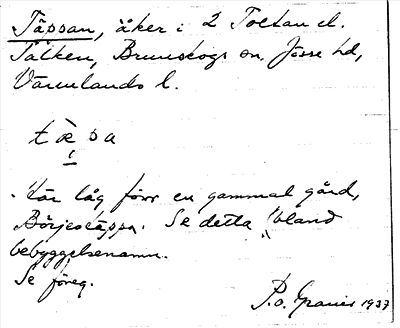 Täppan, åker i 2 Toltan el.
Tålken, Brunskogs sn. Jösse hd,
Värmlands l.
tæ̀pa
Här låg förr en gammal gård,
Börjestäppa. Se detta bland
bebyggelsenamn.
Se föreg.
P.o. 1937